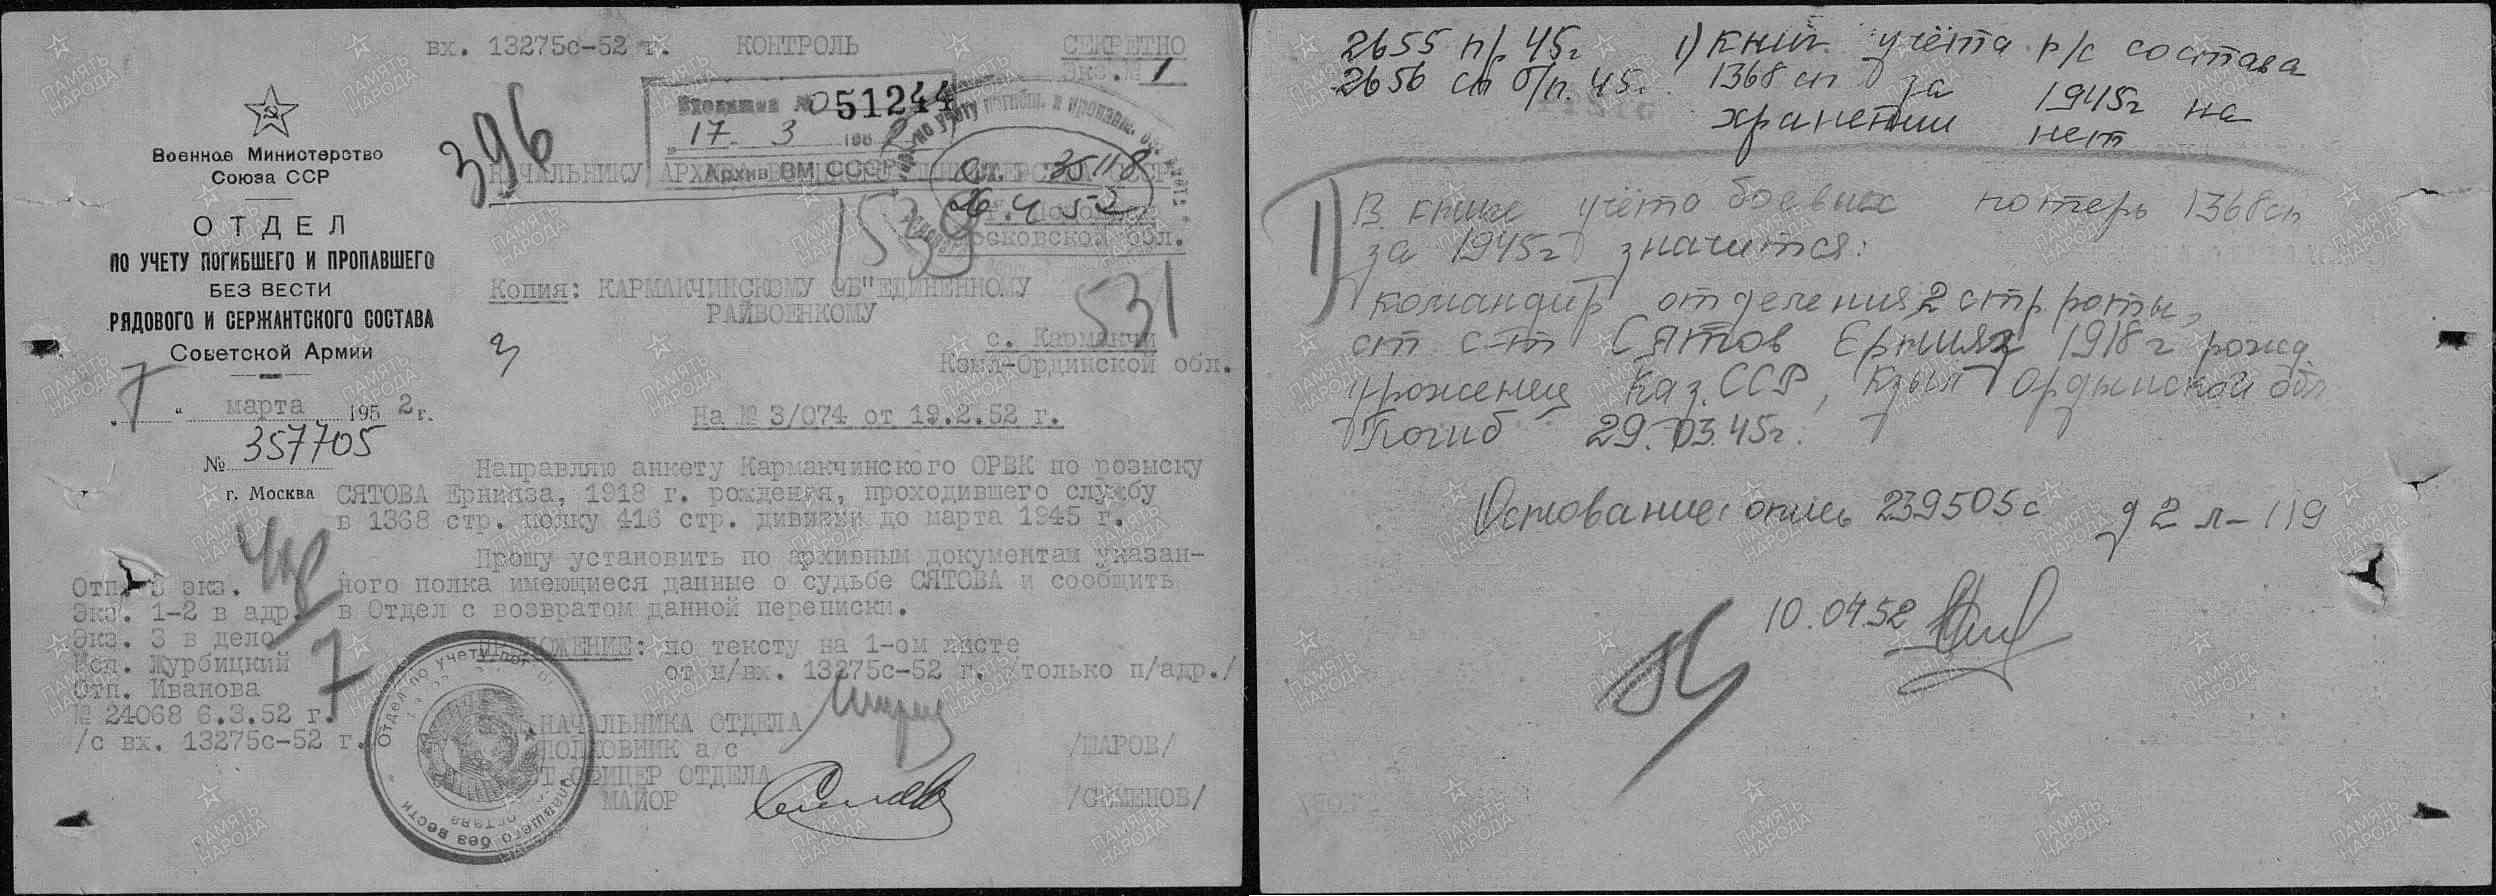 вх. 13275с-52 г. КОНТРОЛЬ СЕКРЕТНО
экз. № 1
Входящий № 051244
17. 3 195
Архив ВМ СССР
396
Военное Министерство
Союза ССР
ОТДЕЛ
ПО УЧЕТУ ПОГИБШЕГО И ПРОПАВШЕГО
БЕЗ ВЕСТИ
РЯДОВОГО И СЕРЖАНТСКОГО СОСТАВА
Советской Армии
"7" марта 1952 г.
№ 357705
г. Москва
НАЧАЛЬНИКУ АРХИВА
35118
26 4 52
Московской обл.
1539
Копия: КАРМАКЧИНСКОМУ ОБ"ЕДИНЕННОМУ
РАЙВОЕНКОМУ
531
с. Кармакчи
Кзыл-Ординской обл.
На № 3/074 от 19.2.52 г.
Направляю анкету Кармакчинского ОРВК по розыску
СЯТОВА Ернияза, 1918 г. рождения, проходившего службу
в 1368 стр. полку 416 стр. дивизии до марта 1945 г.
Прошу установить по архивным документам указан-
ного полка имеющиеся данные о судьбе СЯТОВА и сообщить
в Отдел с возвратом данной переписки.
ПРИЛОЖЕНИЕ: по тексту на 1-ом листе
от н/вх. 13275с-52 г. /только п/адр./
Отп. 3 экз.
Экз. 1-2 в адр.
Экз. 3 в дело
Исп. Журбицкий
Отп. Иванова
№ 24068 6.3.52 г.
/с вх. 13275с-52 г.
7
НАЧАЛЬНИКА ОТДЕЛА
ПОЛКОВНИК а/с /ШАРОВ/
СТ. ОФИЦЕР ОТДЕЛА
МАЙОР /СЕМЕНОВ/
2655 п/р 45г
2656 сп б/п. 45г.
1) книг учёта р/с состава
1368 сп за 1945г на
хранении нет
1) В книге учёта боевых потерь 1368сп
за 1945г значится:
командир отделения 2 стр роты,
ст с-т Сятов Ернияз 1918г рожд.
уроженец Каз.ССР, Кзыл Ордынской обл
Погиб 29.03.45г.
Основание: опись 239505с д 2 л-119
10.04.52